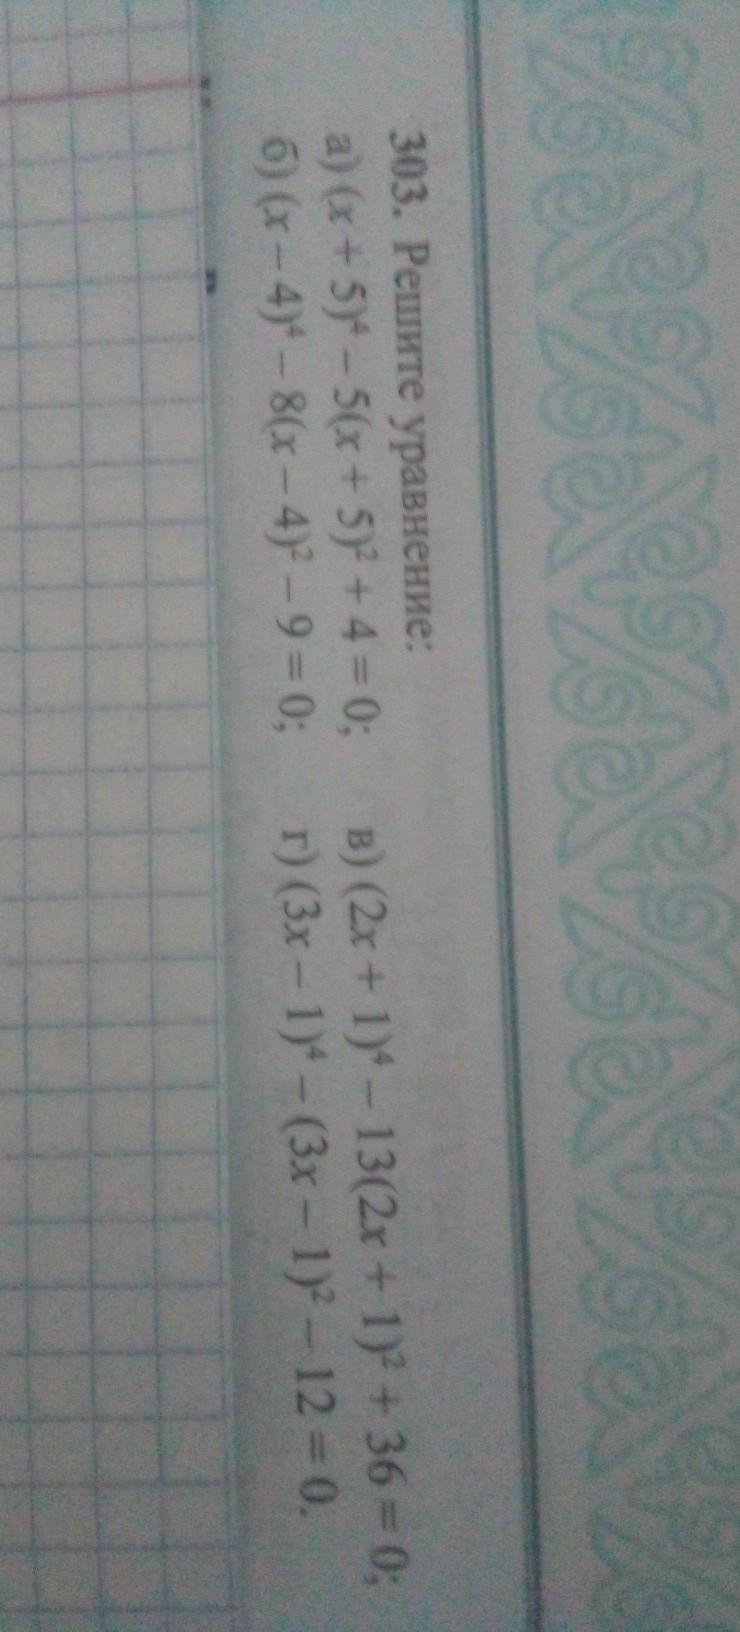 303. Решите уравнение:
а) (x + 5)⁴ – 5(x + 5)² + 4 = 0; в) (2x + 1)⁴ – 13(2x + 1)² + 36 = 0;
б) (x – 4)⁴ – 8(x – 4)² – 9 = 0; г) (3x – 1)⁴ – (3x – 1)² – 12 = 0.